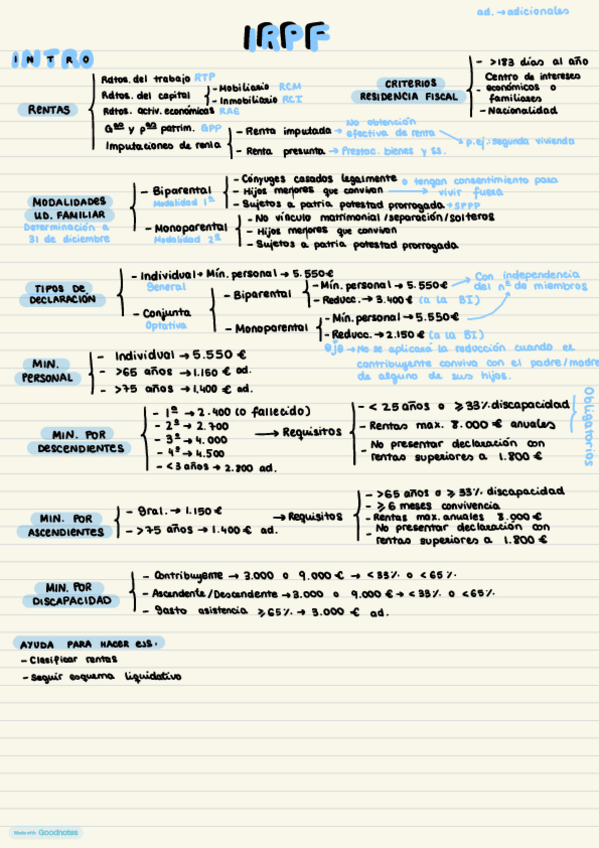 ad. → adicionales
IRPF
INTRO
RENTAS
Rdtos. del trabajo RTP
Rdtos. del capital
- Mobiliario RCM
- Inmobiliario RCI
Rdtos. activ. económicas RAE
Gᵃˢ y pᵃˢ patrim. GPP
Imputaciones de renta
- Renta imputada → No obtención efectiva de renta → p.ej.: segunda vivienda
- Renta presunta → Prestac. bienes y ss.
CRITERIOS RESIDENCIA FISCAL
- >183 días al año
- Centro de intereses económicos o familiares
- Nacionalidad
MODALIDADES UD. FAMILIAR
Determinación a 31 de diciembre
- Biparental
Modalidad 1ª
- Cónyuges casados legalmente
- Hijos menores que convivan → o tengan consentimiento para vivir fuera
- Sujetos a patria potestad prorrogada → SPPP
- Monoparental
Modalidad 2ª
- No vínculo matrimonial/separación/solteros
- Hijos menores que convivan
- Sujetos a patria potestad prorrogada
TIPOS DE DECLARACIÓN
- Individual → Mín. personal → 5.550€
General
- Conjunta
Optativa
- Biparental
- Mín. personal → 5.550€
- Reducc. → 3.400€ (a la BI)
- Monoparental
- Mín. personal → 5.550€
- Reducc. → 2.150€ (a la BI)
Con independencia del nº de miembros
Ojo → No se aplicará la reducción cuando el
contribuyente conviva con el padre/madre
de alguno de sus hijos.
MIN. PERSONAL
- Individual → 5.550€
- >65 años → 1.150€ ad.
- >75 años → 1.400€ ad.
MIN. POR DESCENDIENTES
- 1º → 2.400 (o fallecido)
- 2º → 2.700
- 3º → 4.000
- 4º → 4.500
- <3 años → 2.800 ad.
→ Requisitos
- < 25 años o ≥33% discapacidad
- Rentas max. 8.000€ anuales
- No presentar declaración con
rentas superiores a 1.800€
Obligatorios
MIN. POR ASCENDIENTES
- Gral. → 1.150€
- >75 años → 1.400€ ad.
→ Requisitos
- >65 años o ≥33% discapacidad
- ≥6 meses convivencia
- Rentas max. anuales 8.000€
- No presentar declaración con
rentas superiores a 1.800€
MIN. POR DISCAPACIDAD
- Contribuyente → 3.000 o 9.000€ → <33% o <65%.
- Ascendente/Descendente → 3.000 o 9.000€ → <33% o <65%.
- Gasto asistencia ≥65% → 3.000€ ad.
AYUDA PARA HACER EJS.
- Clasificar rentas
- Seguir esquema liquidativo
Made with Goodnotes